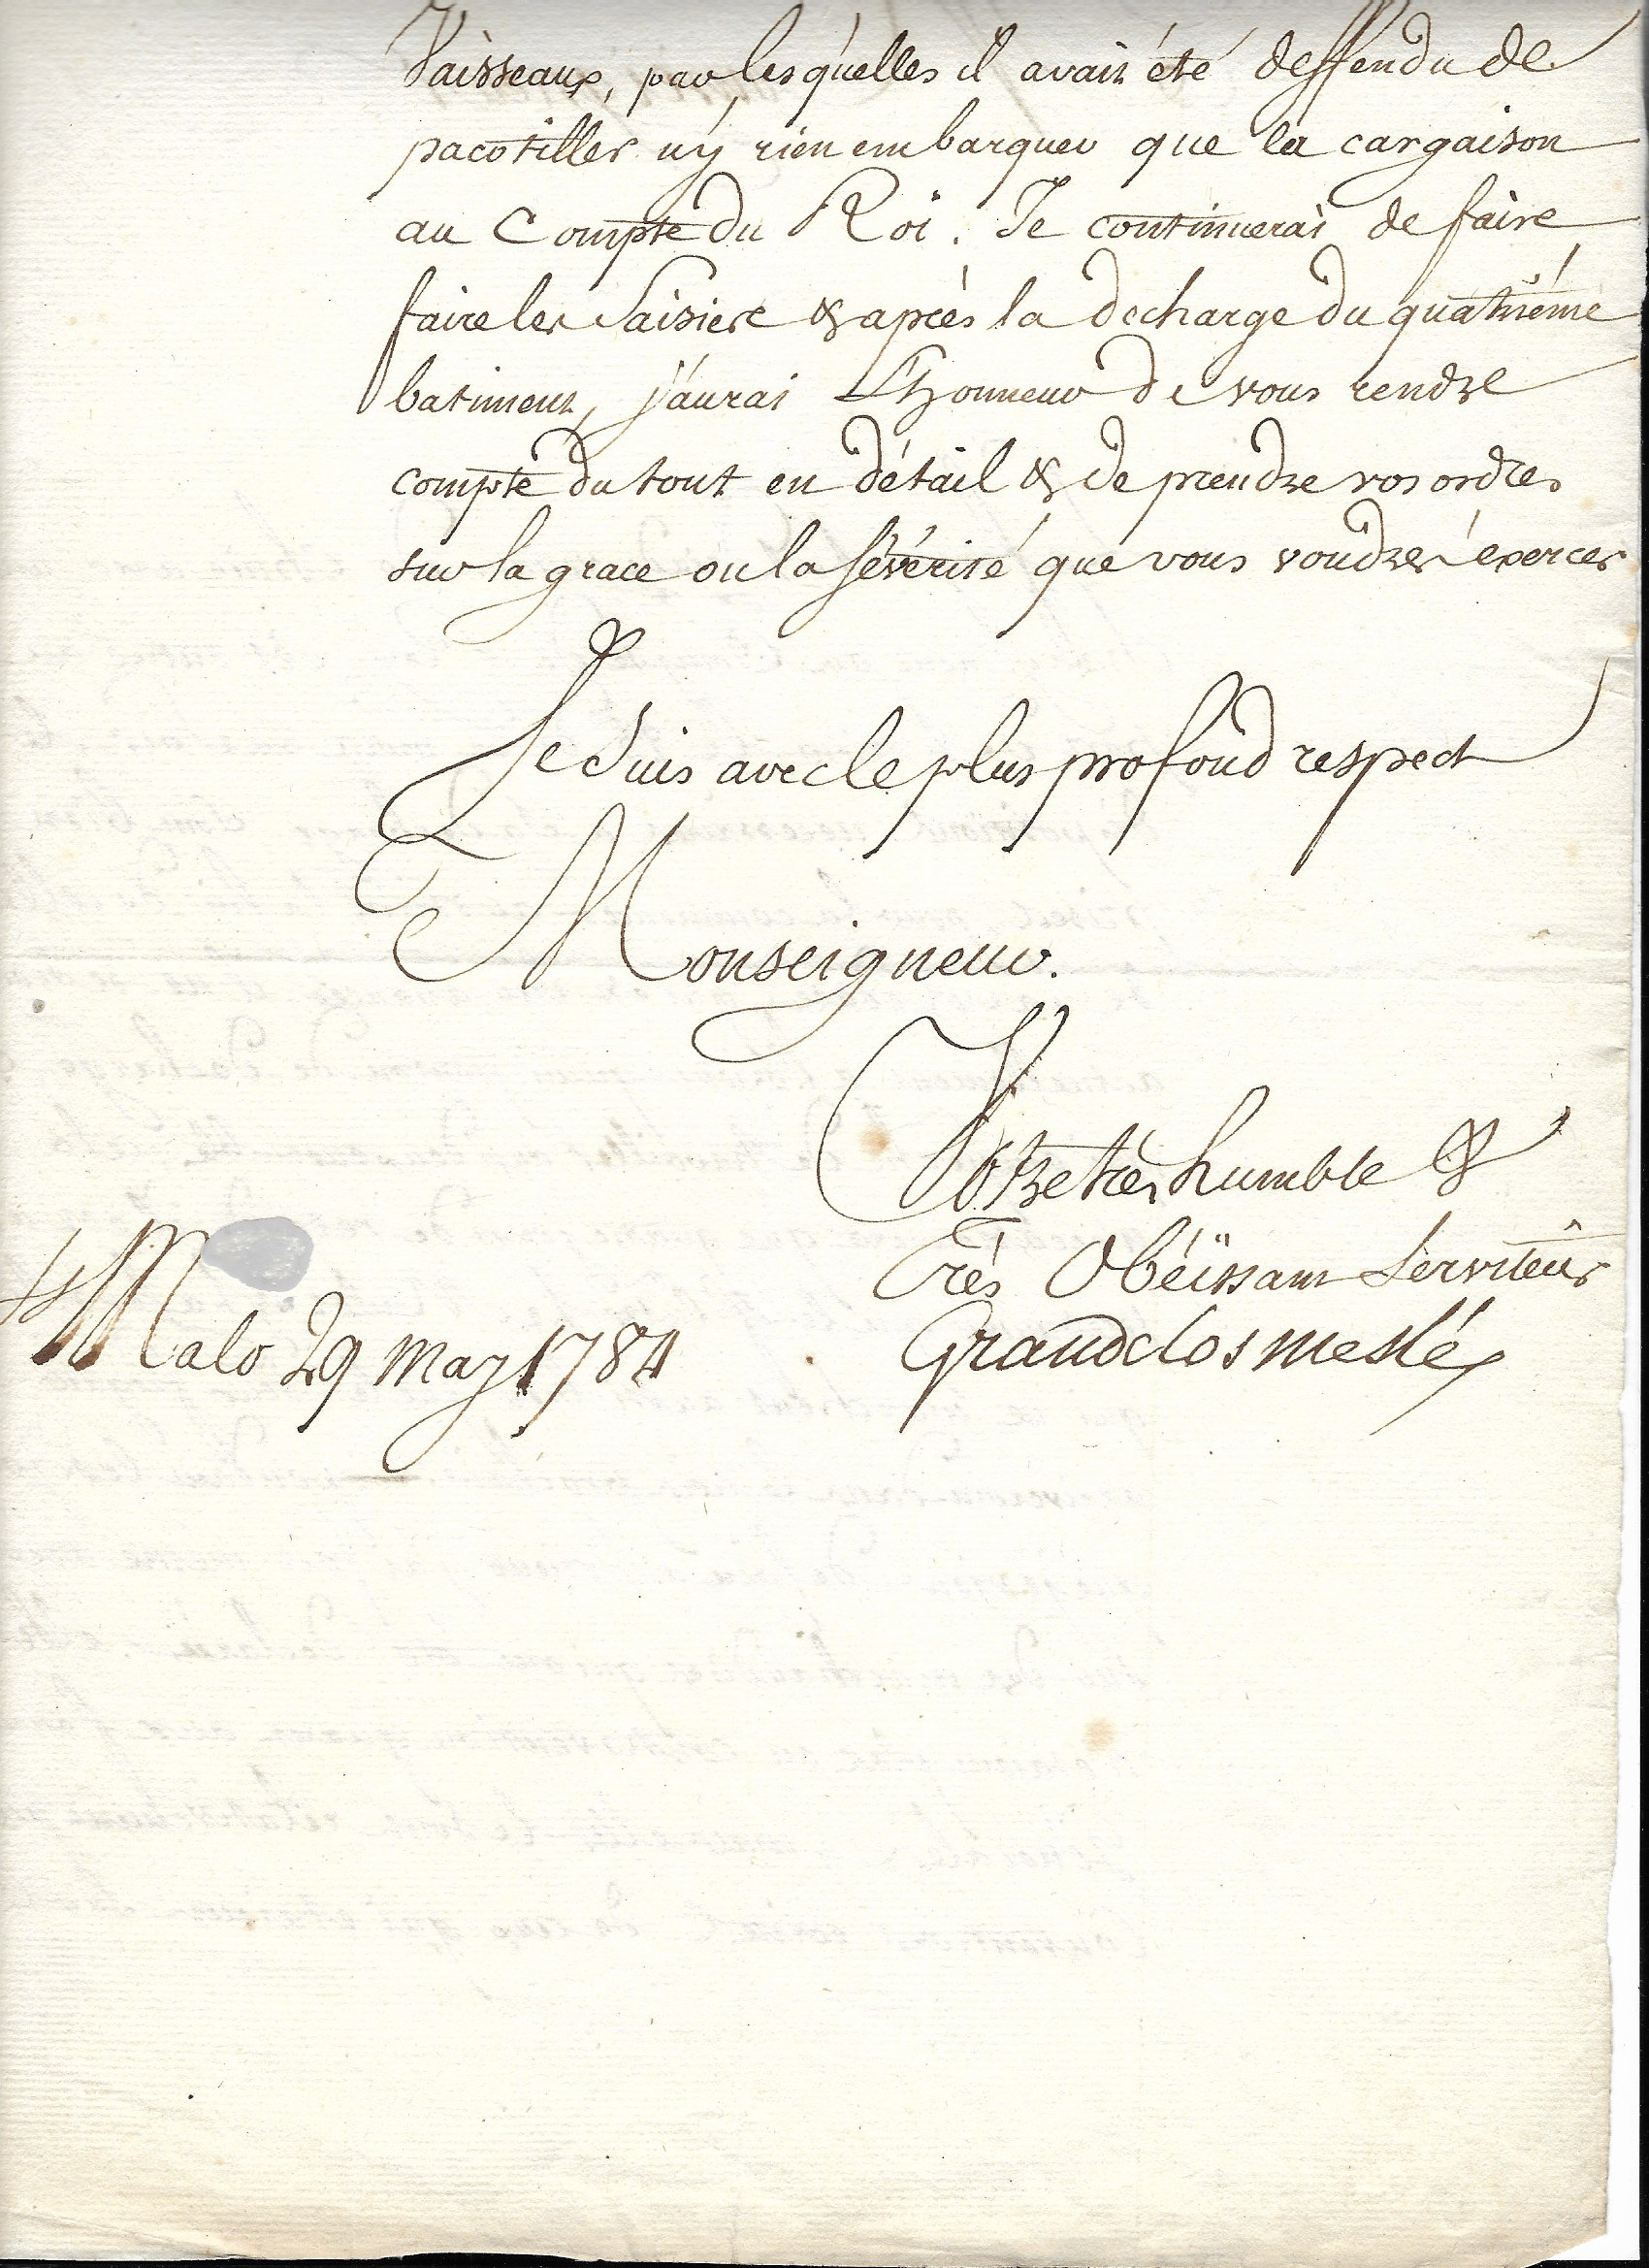 Vaisseaux, par lesquelles il avait été deffendu de
pacotiller n'y rien embarquer que la cargaison
au Compte du Roi. Je continuerai de faire
faire les Saisies & après la decharge du quatriéme
batiment, j'aurai L'honneur de vous rendre
compte du tout en détail & de prendre vos ordres
sur la grace ou la sévérité que vous voudrés éxercer
Je Suis avec le plus profond respect
Monseigneur.
Votre très humble &
Très Obéïssant Serviteur
Grandclos meslé
St Malo 29 may 1784